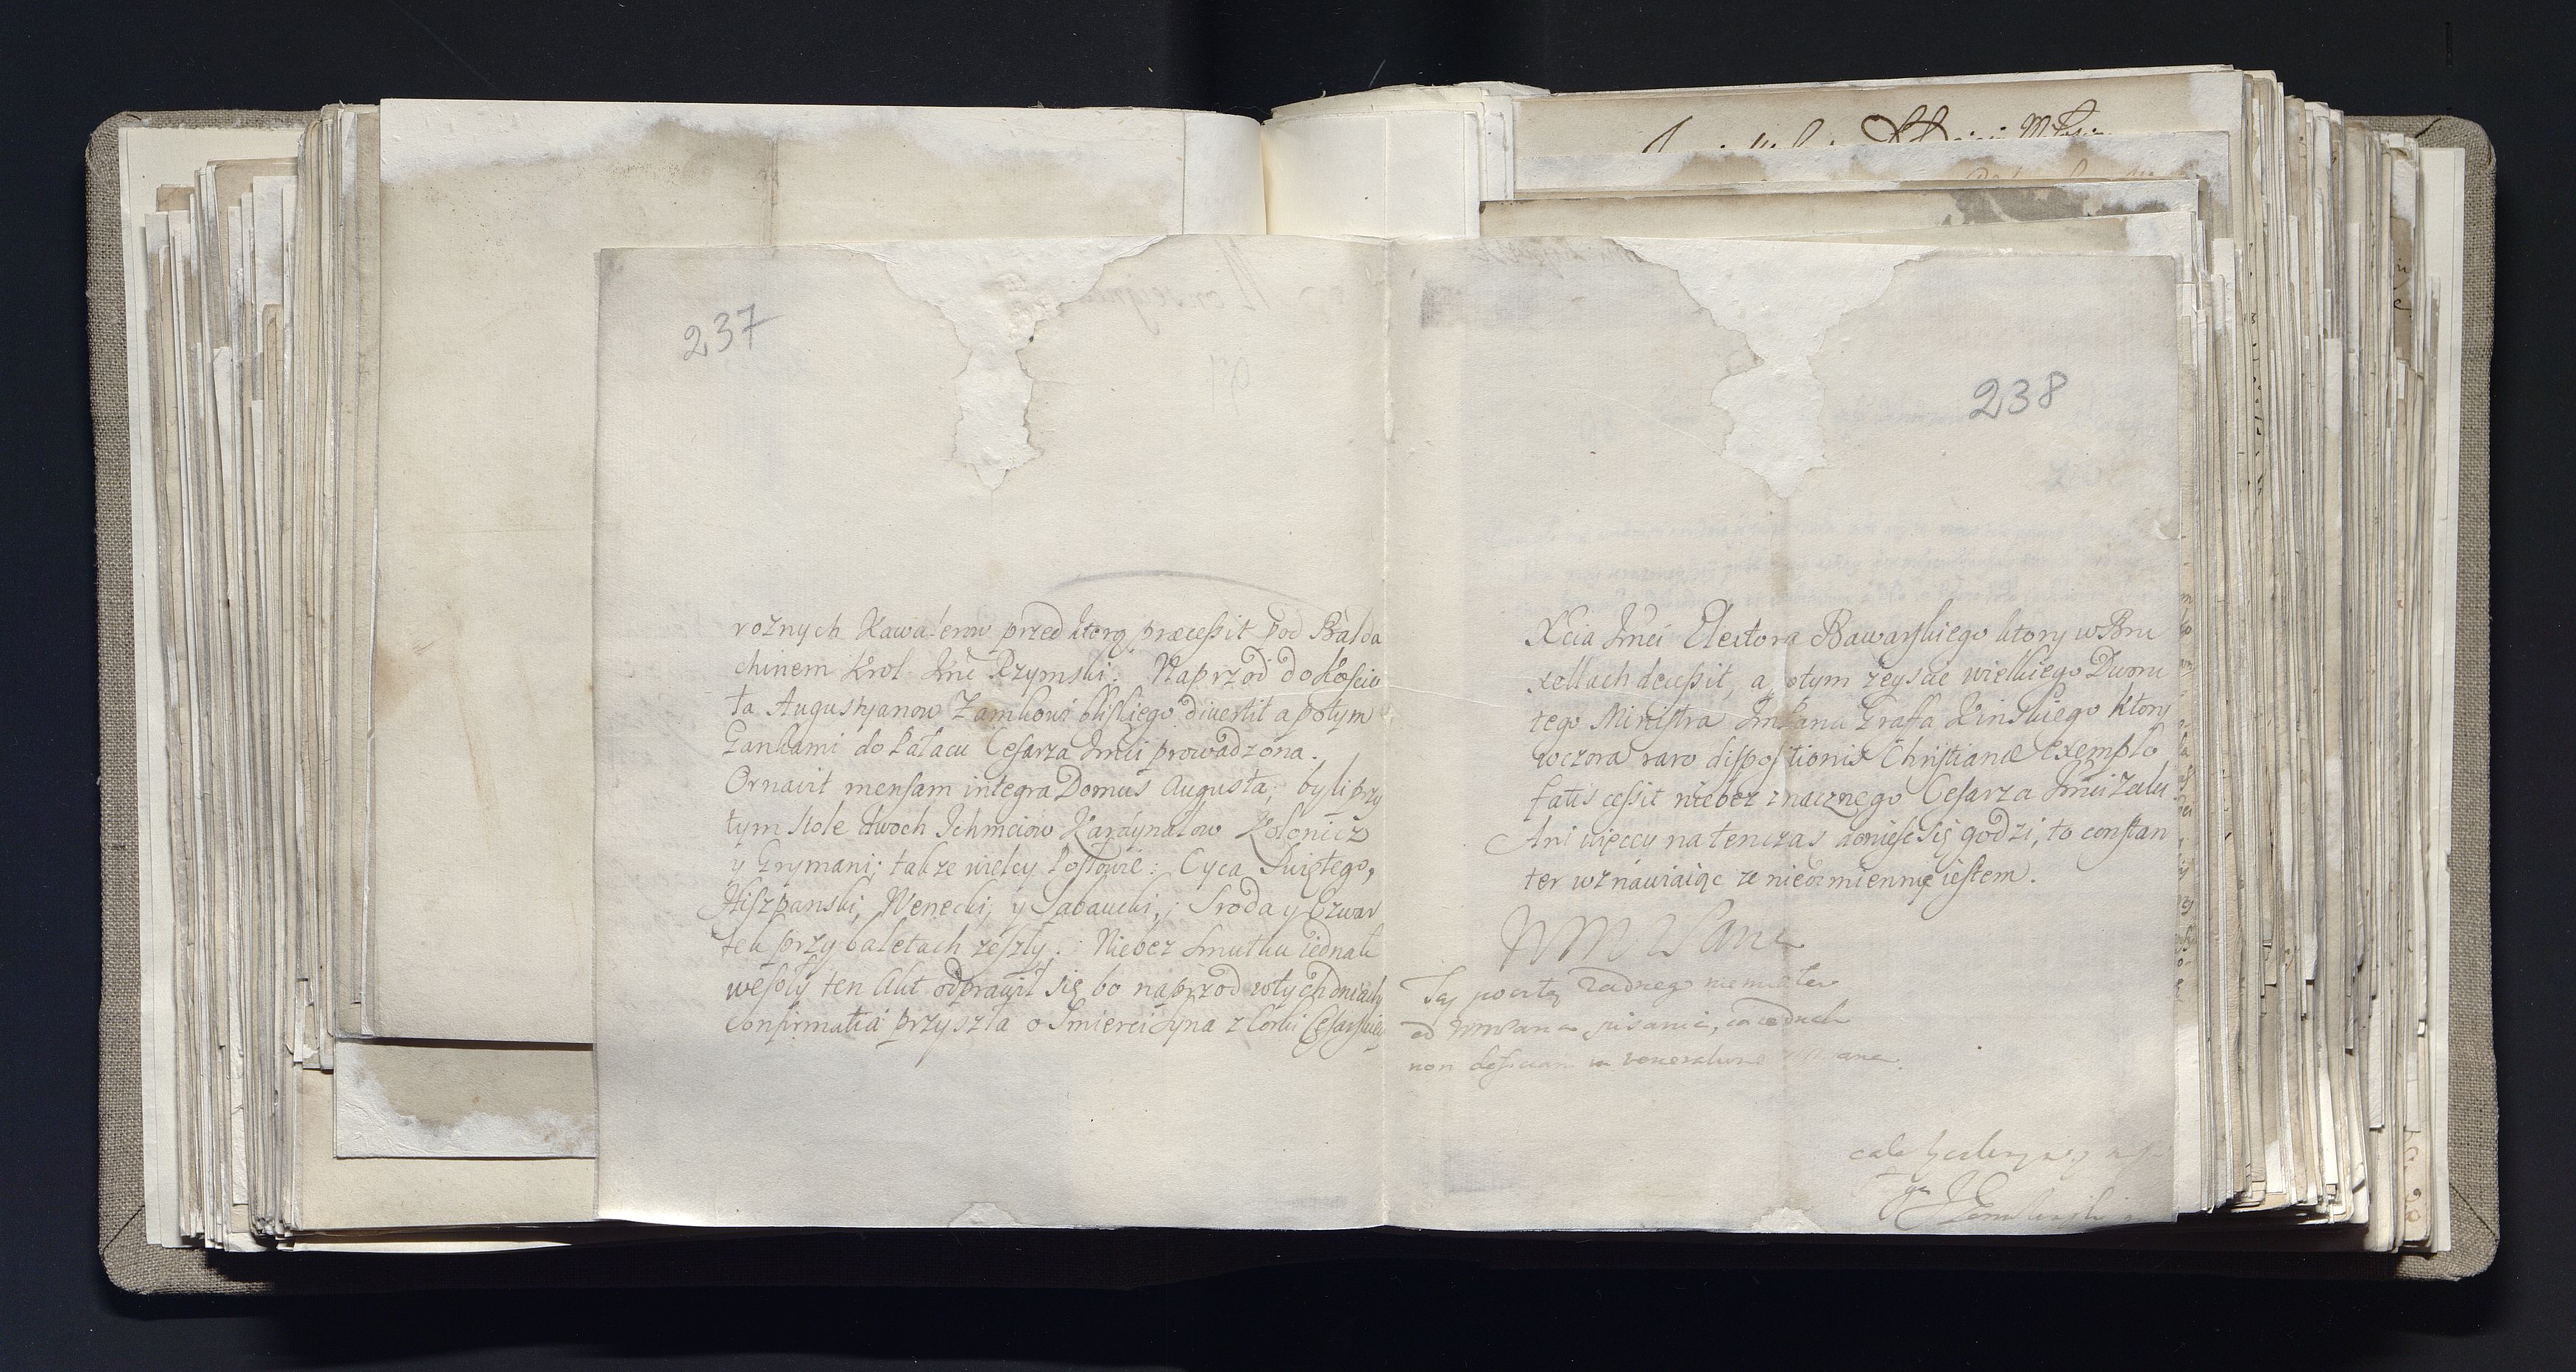 237
roznych Kawalerow przed ktorą præcessit pod Balda
chinem Krol Jmć Rzymski. Naprzod do Koscio
ła Augustyanow Zamkowi bliskiego divertit a potym
Gankami do Pałacu Cesarza Jmci prowadzona.
Ornavit mensam integra Domus Augusta, byli przy
tym stole dwoch Ichmciow Kardynałow Kolonicz
y Grymani; takze wielcy Posłowie: Oyca Swiętego,
Hiszpanski, Wenecki, y Sabaucki,; Sroda y Czwar
tek przy baletach zeszły. Niebez smutku iednak
wesoły ten Akt odprawił się bo naprzod w tych dniach
Confirmatia przyszła o Smierci Syna z Corki Cesarskiey
238
Xcia Jmci Electora Bawarskiego ktory w Bru
xellach decessit, a potym zeyscie wielkiego Dworu
tego Ministra JmPana Grafa Kinskiego ktory
wczora raro dispositionis Christianæ exemplo
fatis cessit niebez znacznego Cesarza Jmci zalu
Ani więcey na tenczas donieść się godzi, to constan
ter wznawiaiąc ze nieodmiennie iestem.
WM Pana
Tą pocztą zadnego nie miałem
od WmPana pisania, ia iednak
non desinam in veneratione
cale